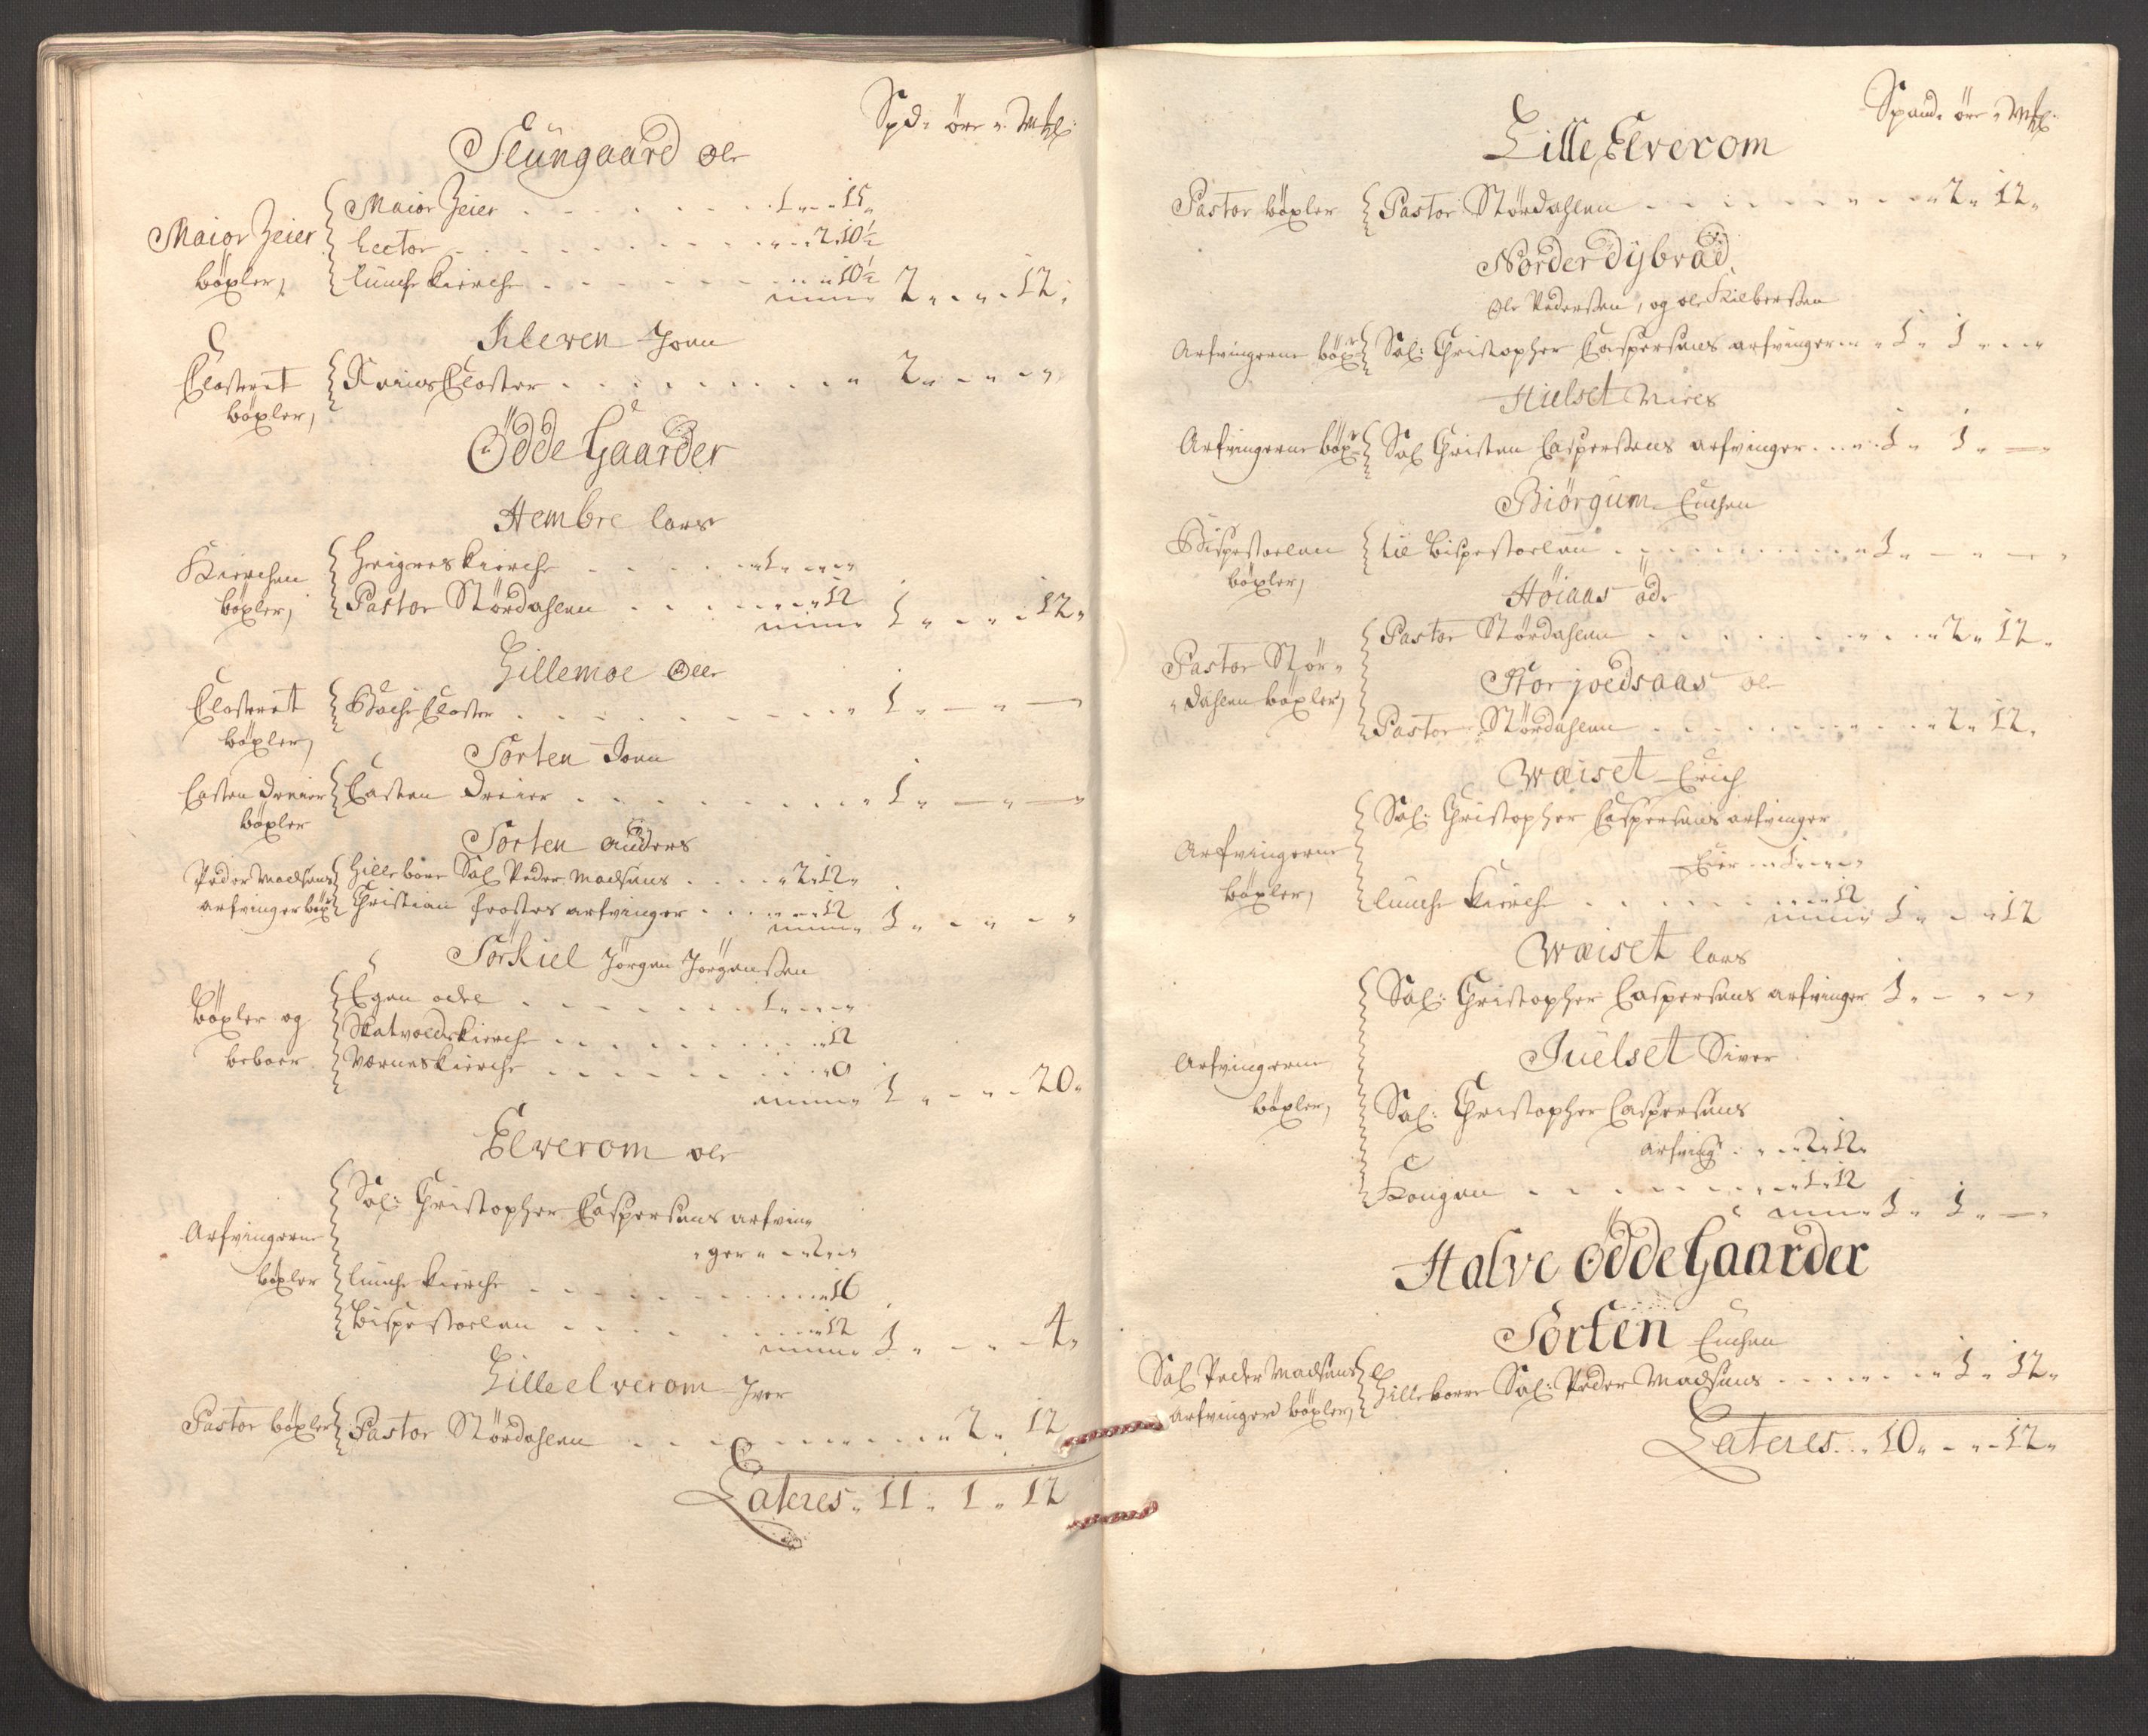 Spd: öre " Mkl:
Slungaard Ole
Maior Zeier
böxler,
Maior Zeier . . . . . . . 1 " - - 15 "
Lector . . . . . . . . " - - 2 10½
Lunche Kierche . . . . . . " 10½
2 " - " - 12 "
Kleven Joen
Closterit
böxler,
Reins Closter . . . . . . . . " 2 " - " - "
Ödde Gaarder
Hembre Lars
Kierchen
böxler,
Heignes Kierche . . . . . 1 " - " - "
Pastor Stördahlen . . . . . " 12
1 " - " - 12 "
Lillemoe Olle
Closterit
böxler,
Bache Closter . . . . . . . . . " 1 " - " -
Torten Joen
Casten Dreier
böxler
Casten Dreier . . . . . . . . " 1 " - " -
Torten Anders
Peder Madsens
arfvinger böx
Hilleborre Sal Peder Madsens . . . . " 2 " 12 "
Christian frostes arfvinger . . . " - " 12
1 " - " - "
Torkiel Jörgen Jörgensen
böxler og
beboer
Egen odel . . . . . . . 1 " - " - "
Skatvolds Kierche . . . . . . . . " 12
Værnes Kierche . . . . . . . . " 8
1 " - " - 20 "
Elverom Ole
Arfvingerne
böxler
Sal: Christopher Caspersens arfvin "
" ger " - " 2 " - "
Lunche Kierche . . . . . . . . " 16
Bispestoelen . . . . . . . " 12
1 " - " - 4 "
Lille elverom Iver
Pastor böxler
Pastor Stördahlen . . . . . . . . " 2 " 12
Lateres " 11 " 1 " 12
Spand: öre " Mkl:
Lille Elverom
Pastor böxler
Pastor Stördahlen . . . . . . . . " 2 " 12 "
Norder Dybvad
Ole Pedersen, og ole Kilbersen
Arfvingerne böxr
Sal: Christopher Caspersens arfvinger " 1 " 1 " - "
Hielset Niels
Arfvingerne böxr
Sal Christen Caspersens arfvinger . . . 1 " 1 " - "
Biörgum Enchen
Bispestoelen
böxler,
til bispestoelen . . . . . . . . . 1 " - " - "
Höiaas öde
Pastor Stör "
" dahlen böxler,
Pastor Stördahlen . . . . . . . . " 2 " 12 "
Stor joedsaas ole
Pastor Stördahlen . . . . . . . . " 2 " 12 "
Waiset Erich
Arfvingerne
böxler,
Sal: Christopher Caspersens arfvinger
Eier " 1 " - " - "
Lunche Kierche . . . . . . . . " 12
1 " - " 12
Waiset Lars
Sal: Christopher Caspersens arfvinger 1 " - " - "
Juelset Siver
Arfvingerne
böxler,
Sal: Christopher Caspersens
arfving: . " - " 2 " 12 "
Kongen . . . . . . . . " 1 " 12
1 " 1 " - "
Halve Ödde Gaarder
Torten Enchen
Sal Peder Madsens
arfvinger böxler,
Hilleborre Sal: Peder Madsens . . . . . " 1 " 12 "
Lateres . . 10 " - " - 12 "